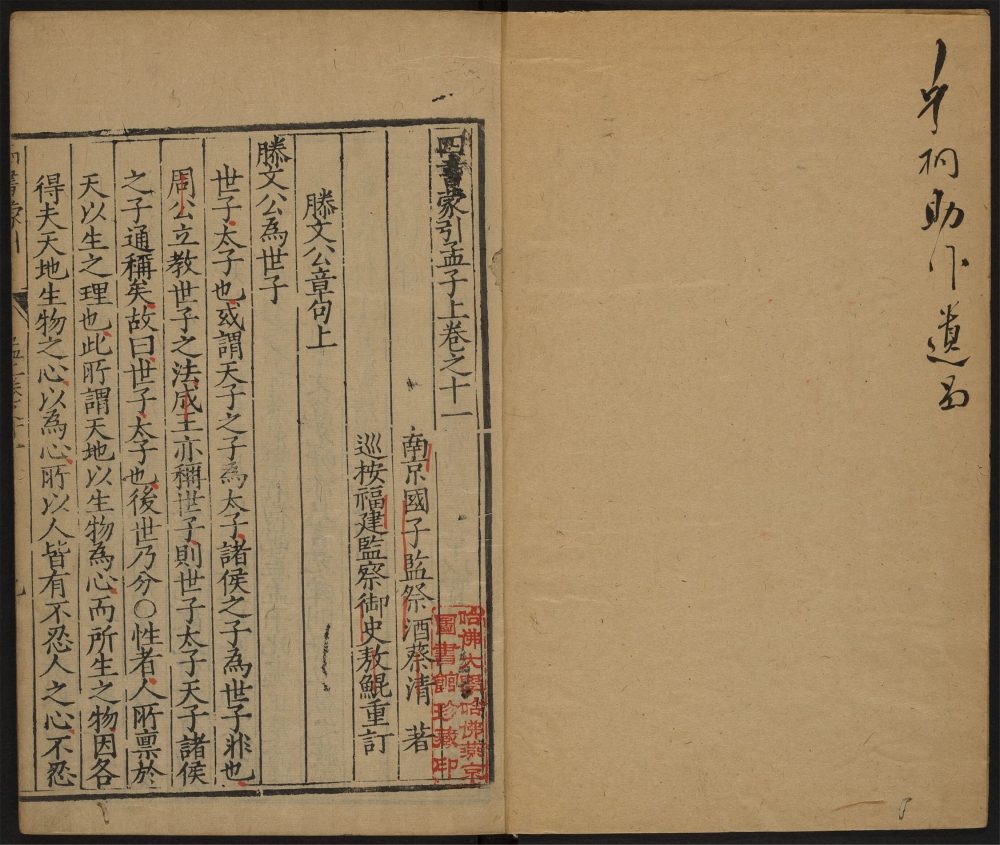 四書蒙引孟子上卷之十一
南京國子監祭酒蔡清 著
巡按福建監察御史敖鯤重訂
滕文公章句上
滕文公為世子
世子太子也或謂天子之子為太子諸侯之子為世子非也
周公立教世子之法成王亦稱世子則世子太子天子諸侯
之子通稱矣故曰世子太子也後世乃分○性者人所禀於
天以生之理也此所謂天地以生物為心而所生之物因各
得夫天地生物之心以為心所以人皆有不忍人之心不忍
哈佛大學哈佛燕京
圖書館珍藏印